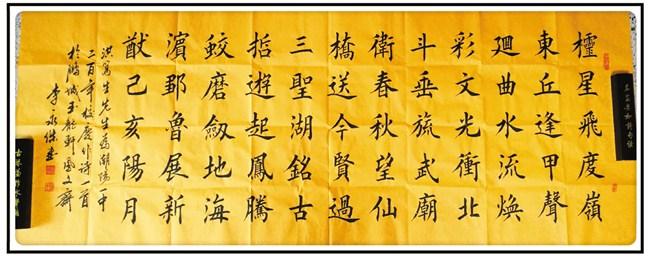 櫺星飛度嶺
東丘逢甲聲
迴曲水流煥
彩文光衝北
斗垂旒武廟
衛春秋望仙
橋送今賢過
三聖湖銘古
哲遊起鳳騰
鮫磨劔地海
濵鄒魯展新
猷己亥陽月
洪篤生先生為湖陽一中
二百年校慶作詩一首
於鴻城玉龍軒文齋
李永傑書